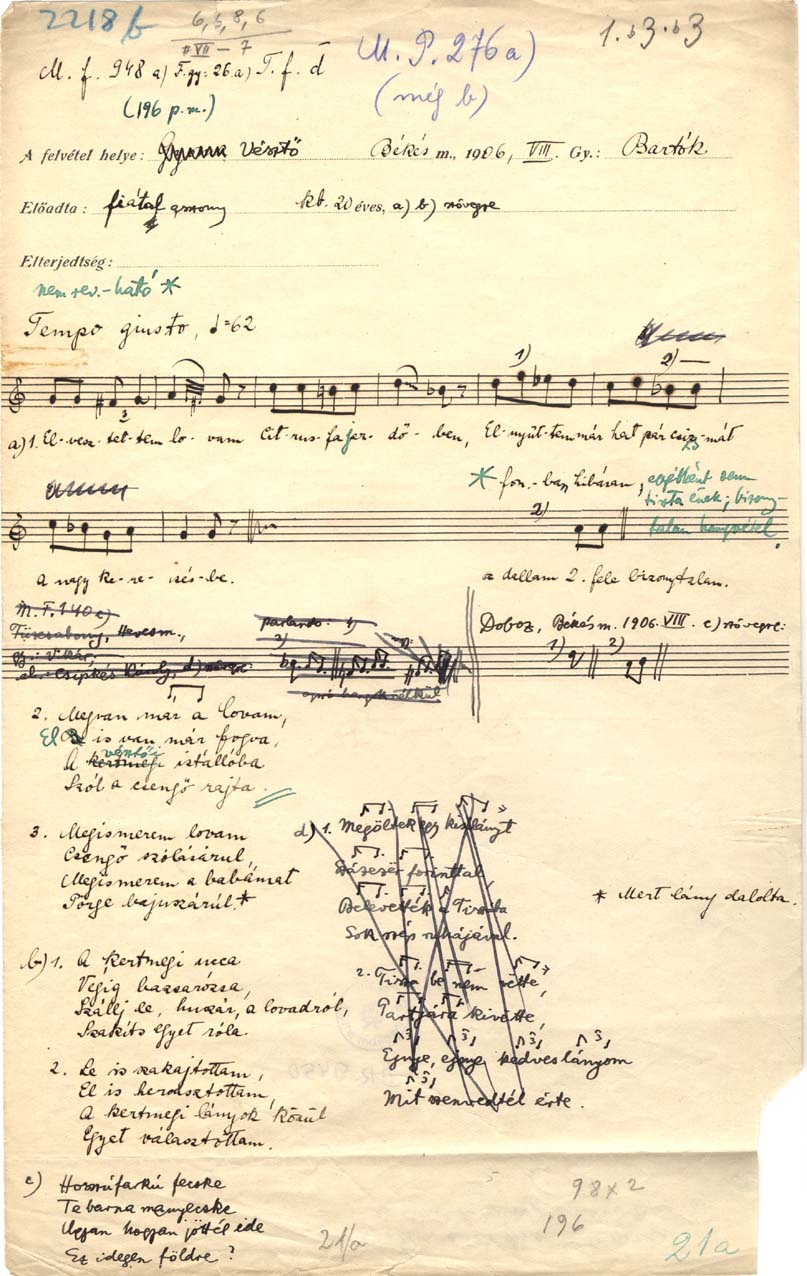 2218 b
6, 5, 8, 6
VII – 7
1. b3. b3
M. P. 276 a)
(még b)
M. f. 948 a) F. gy: 26. a) T. f. d
(196 p.m.)
A felvétel helye: Vésztő Békés m., 1906, VIII. Gy.: Bartók
Előadta: fiatal asszony kb. 20 éves, a) b) szövegre
Elterjedtség:
nem rev.-ható *
Tempo giusto, ♩=62
1) 2)
3
a) 1. El-vesz-tet-tem lo-vam cit-rus-fa-jer-dő-ben, El-nyűt-tem már hat pár csiz-mát
* fon.-ban hibásan, egyébként sem
tiszta ének; bizony-
talan hangvétel.
2)
a nagy ke-re-sés-be.
a dallam 2. fele bizonytalan.
M. F. 140 c)
Füzesabony, Heves m.,
Gy.: Vikár,
parlando: 1)
3)
Doboz, Békés m. 1906. VIII. c) szövegre:
1) 2)
2. Megvan már a lovam,
El is van már fogva,
A vésztői istállóba
Szól a csengő rajta.
3. Megismerem lovam
Csengő szólásárul,
Megismerem a babámat
Pörge bajuszárúl.*
* Mert lány dalolta.
d) 1. Megöltek egy kis lányt
forinttal,
Belevetették a Tiszába
Sok szép ruhájával.
2. Tisza be nem vette,
Partjára kivette,
Ejnye, ejnye kedves lányom
Mit szenvedtél érte.
b) 1. A kertmegi ucca
Végig bazsarózsa,
Szállj le, huszár, a lovadról,
Szakíts egyet róla.
2. Le is szakajtottam,
El is hervasztottam,
A kertmegi lányok közül
Egyet választottam.
c) Hosszúfarkú fecske
Te barna menyecske
Ugyan hogyan jöttél ide
Ez idegen földre?
98 x 2
196
21/a
21a